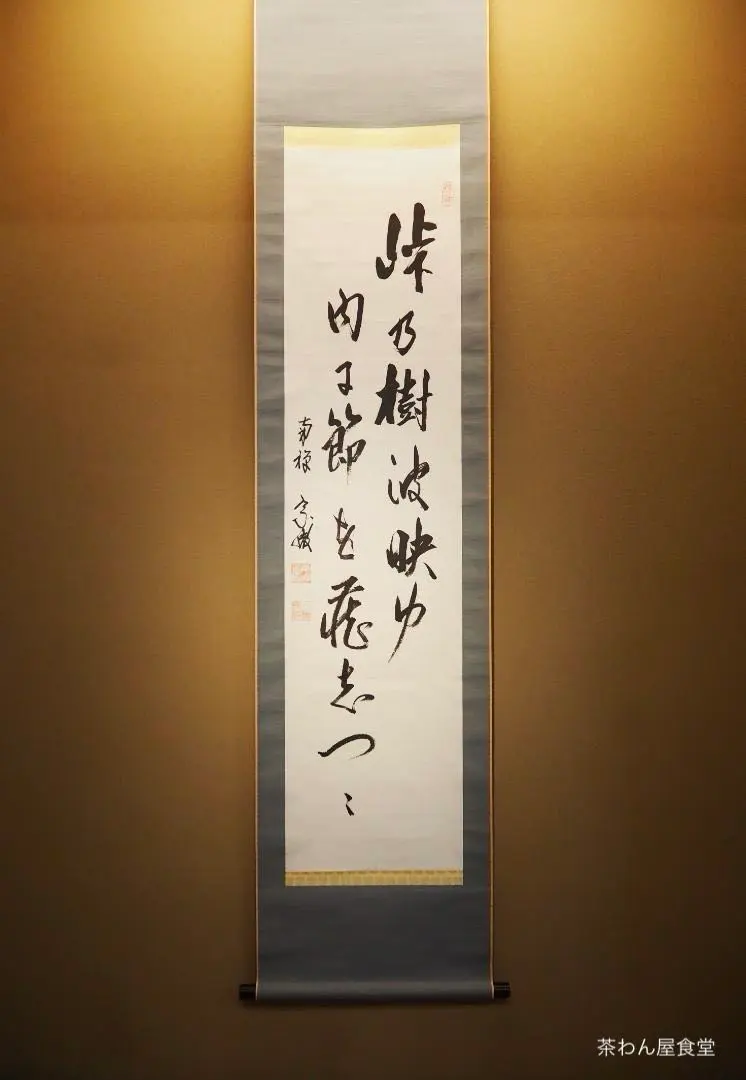 峠乃樹波映ゆ
内に節を蔵志つゝ
南禅
茶わん屋食堂